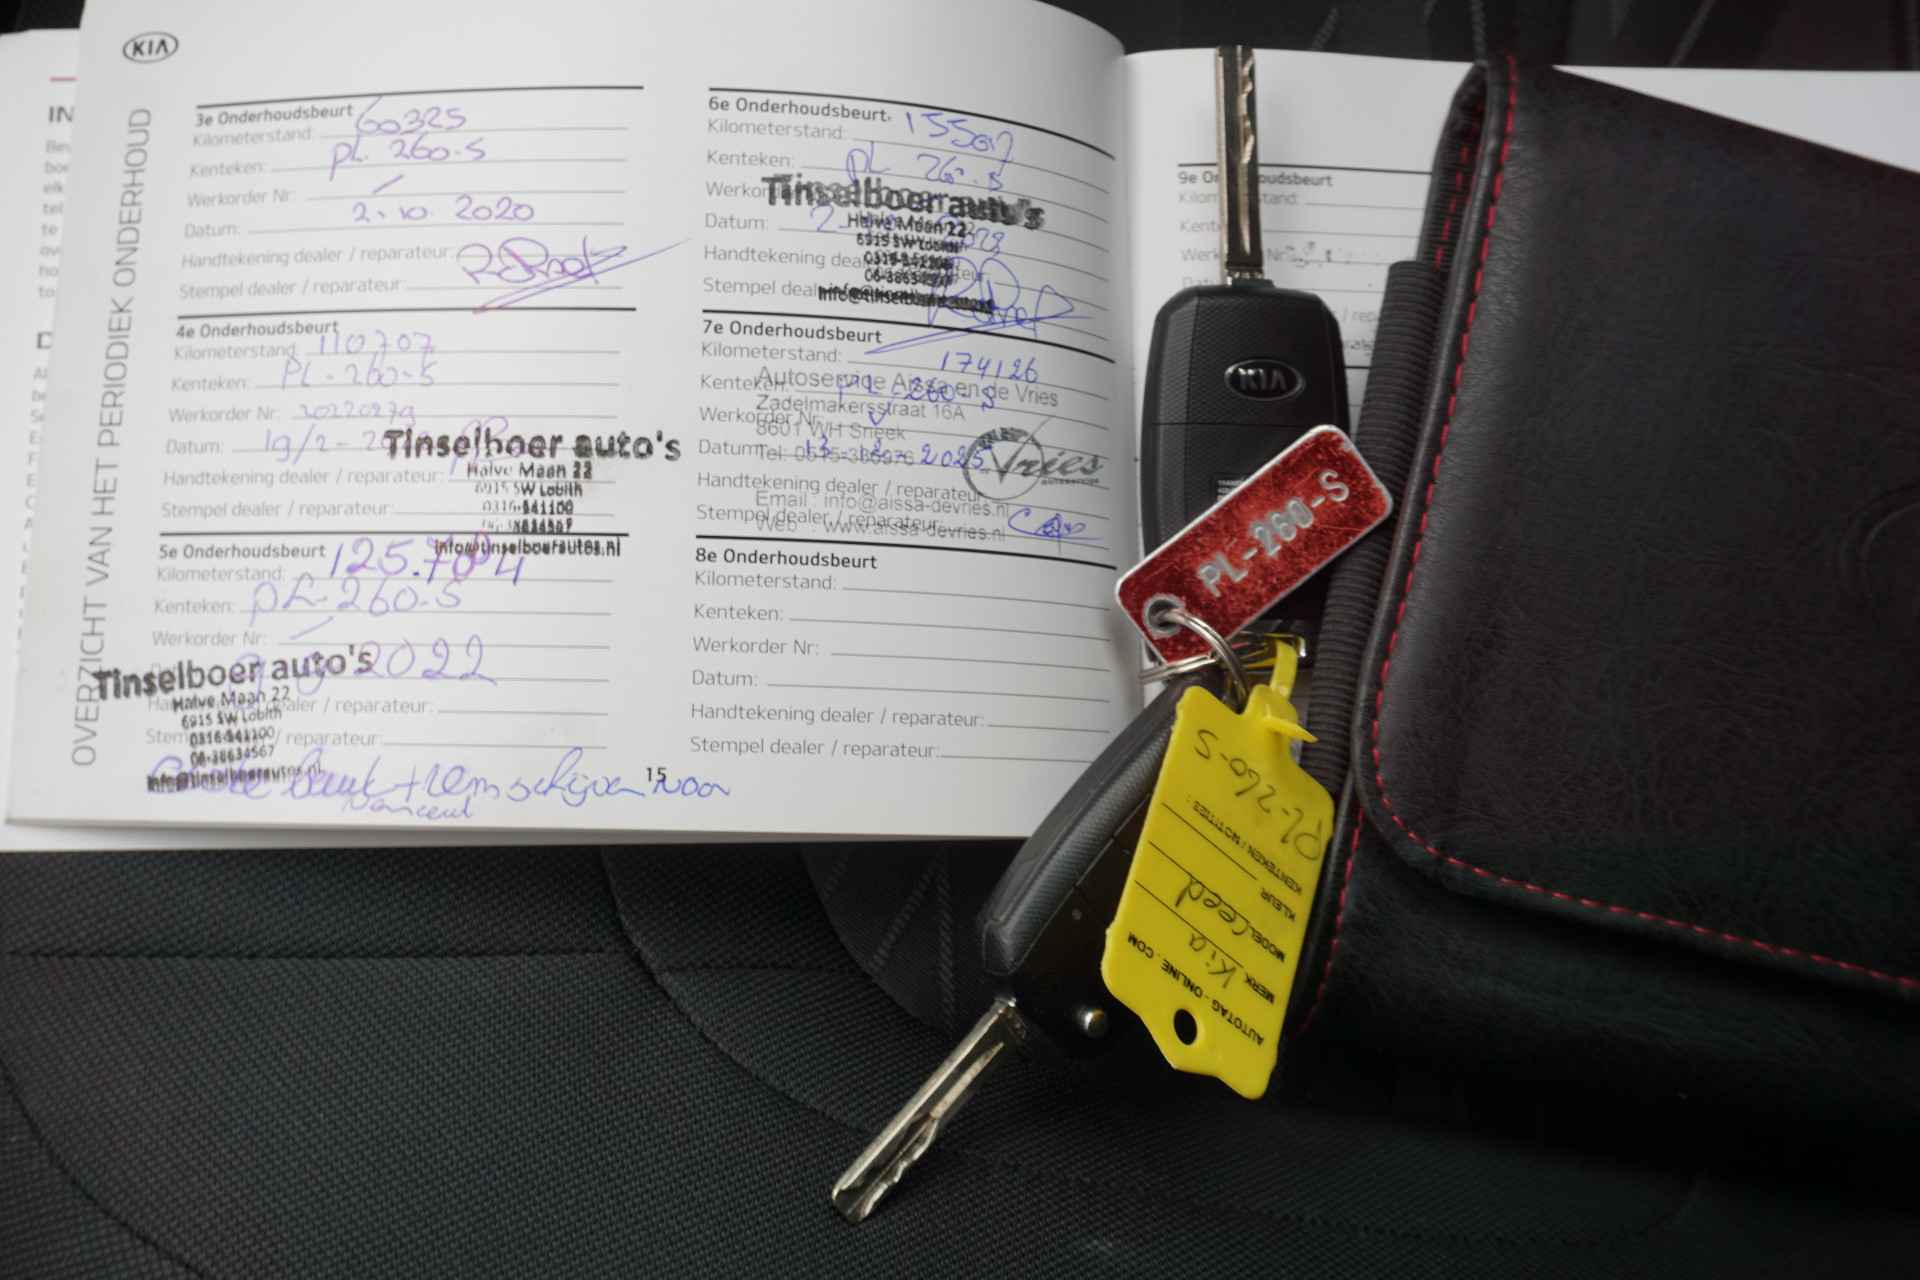 KIA
OVERZICHT VAN HET PERIODIEK ONDERHOUD
IN
3e Onderhoudsbeurt
Kilometerstand: 60325
Kenteken: PL-260-S
Werkorder Nr: /
Datum: 2-10-2020
Handtekening dealer / reparateur:
Stempel dealer / reparateur:
4e Onderhoudsbeurt
Kilometerstand: 110707
Kenteken: PL-260-S
Werkorder Nr: 20220279
Datum: 19/2-
Handtekening dealer / reparateur:
Stempel dealer / reparateur:
Tinselboer auto's
Halve Maan 22
6915 SW Lobith
0316-541100
info@tinselboerautos.nl
5e Onderhoudsbeurt
Kilometerstand: 125.704
Kenteken: PL-260-S
Werkorder Nr: /
2022
dealer / reparateur:
/ reparateur:
Tinselboer auto's
Halve Maan 22
6915 SW Lobith
0316-541100
06-38634567
info@tinselboerautos.nl
beurt + remschijven voor
15
6e Onderhoudsbeurt
Kilometerstand: 155017
Kenteken: PL 260-S
Datum: 2
Handtekening
Stempel
Tinselboer auto's
Halve Maan 22
6915 SW Lobith
7e Onderhoudsbeurt
Kilometerstand: 174126
Kenteken: PL-260-S
Werkorder Nr:
Datum: 13- 2025
Handtekening dealer / reparateur:
Stempel dealer / reparateur:
Autoservice Aissa en de Vries
Zadelmakersstraat 16A
8601 WH Sneek
Email : info@aissa-devries.nl
Web : www.aissa-devries.nl
Vries
autoservice
8e Onderhoudsbeurt
Kilometerstand:
Kenteken:
Werkorder Nr:
Datum:
Handtekening dealer / reparateur:
Stempel dealer / reparateur:
9e Onderhoudsbeurt
KIA
PL-260-S
AUTOTAG-ONLINE.COM
MERK Kia
MODEL Ceed
KLEUR
KENTEKEN / NOTITIES:
PL-260-S